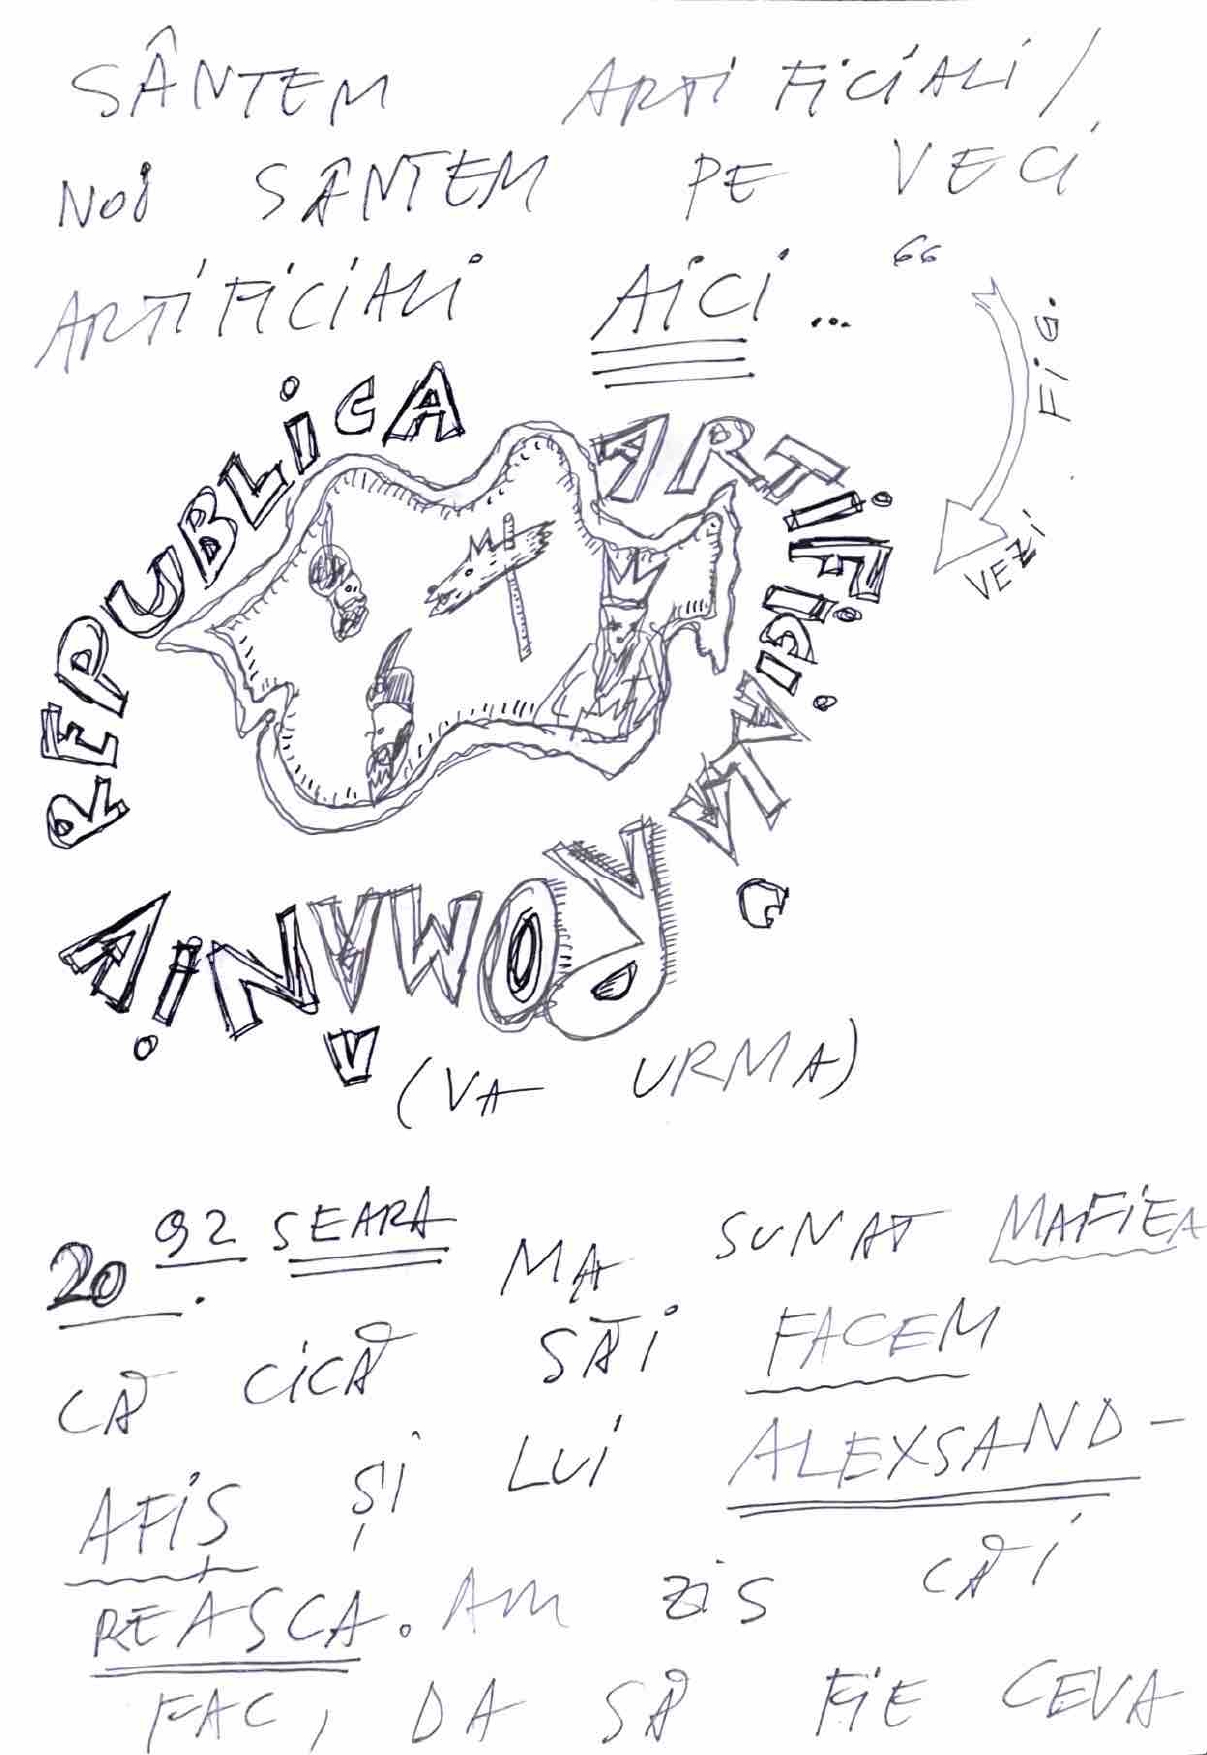 SÂNTEM ARTIFICIALI/
NOI SÂNTEM PE VECI
ARTIFICIALI AICI ... "
VEZI FIG.
REPUBLICA ARTIFICIALĂ ROMÂNIA
(VA URMA)
20 92 SEARA. MA SUNAT MAFIEA
CĂ CICĂ SĂI FACEM
AFIȘ ȘI LUI ALEXSAND-
REASCA. AM ZIS CĂI
FAC, DA SĂ FIE CEVA